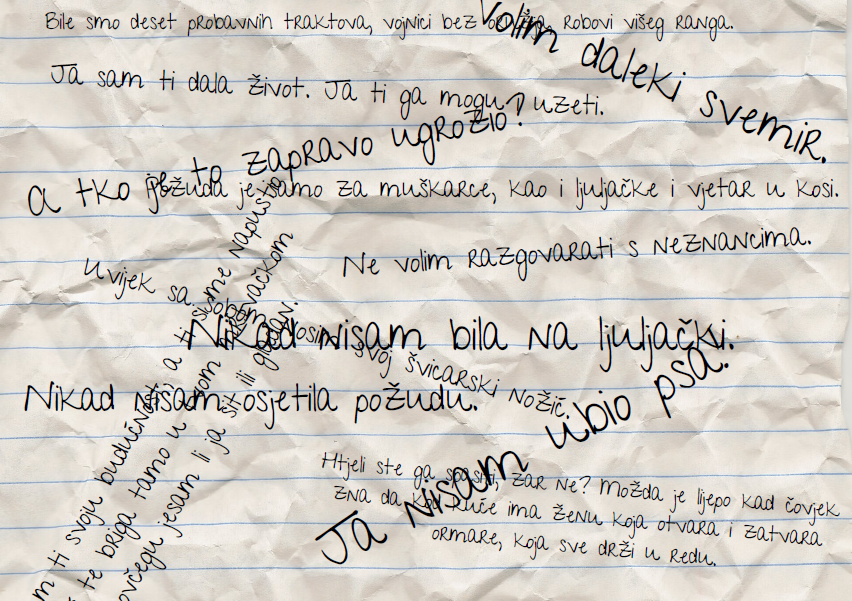 Bile smo deset probavnih traktova, vojnici bez robovi višeg ranga.
Volim daleki svemir.
Ja sam ti dala život. Ja ti ga mogu uzeti.
a tko je to zapravo ugrozio?
Požuda je samo za muškarce, kao i ljuljačke i vjetar u kosi.
Ne volim razgovarati s neznancima.
Uvijek sa sobom nosim svoj švicarski nožić.
Nikad nisam bila na ljuljački.
Nikad nisam osjetila požudu.
Ja nisam ubio psa.
Htjeli ste ga spasiti, zar ne? Možda je lijepo kad čovjek
zna da kod kuće ima ženu koja otvara i zatvara
ormare, koja sve drži u redu.
m ti svoju budućnost, a ti si me napustio
te briga tamo u
ovčegu jesam li ja sit ili gladan.